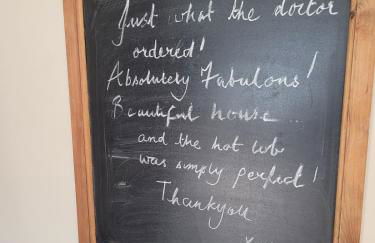 Just what the doctor
ordered!
Absolutely Fabulous!
Beautiful house...
and the hot tub
was simply perfect!
Thankyou
x